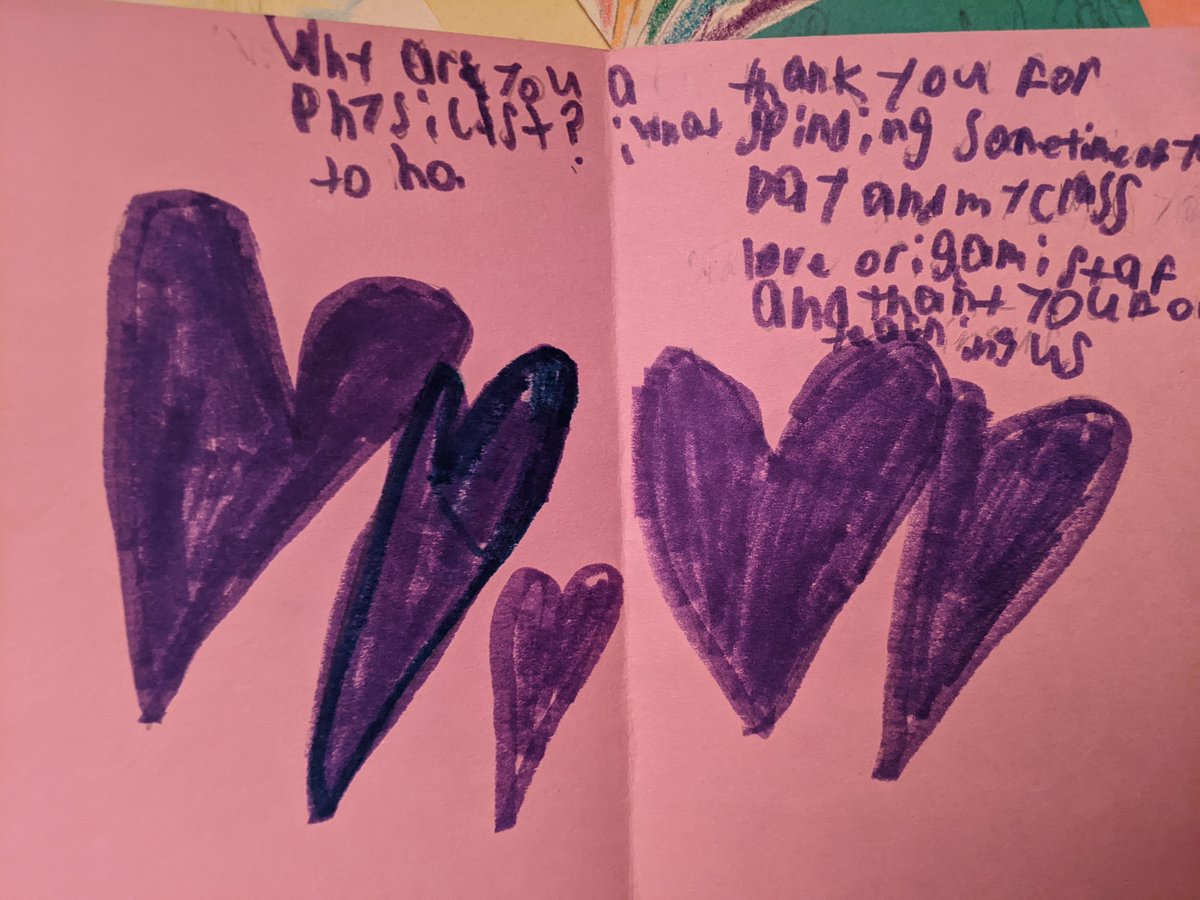 Why are you a
Physicist? i want
to no.
thank you for
spinding sometime of
Day and my class
love origami staf
and thank you fo
teaching us